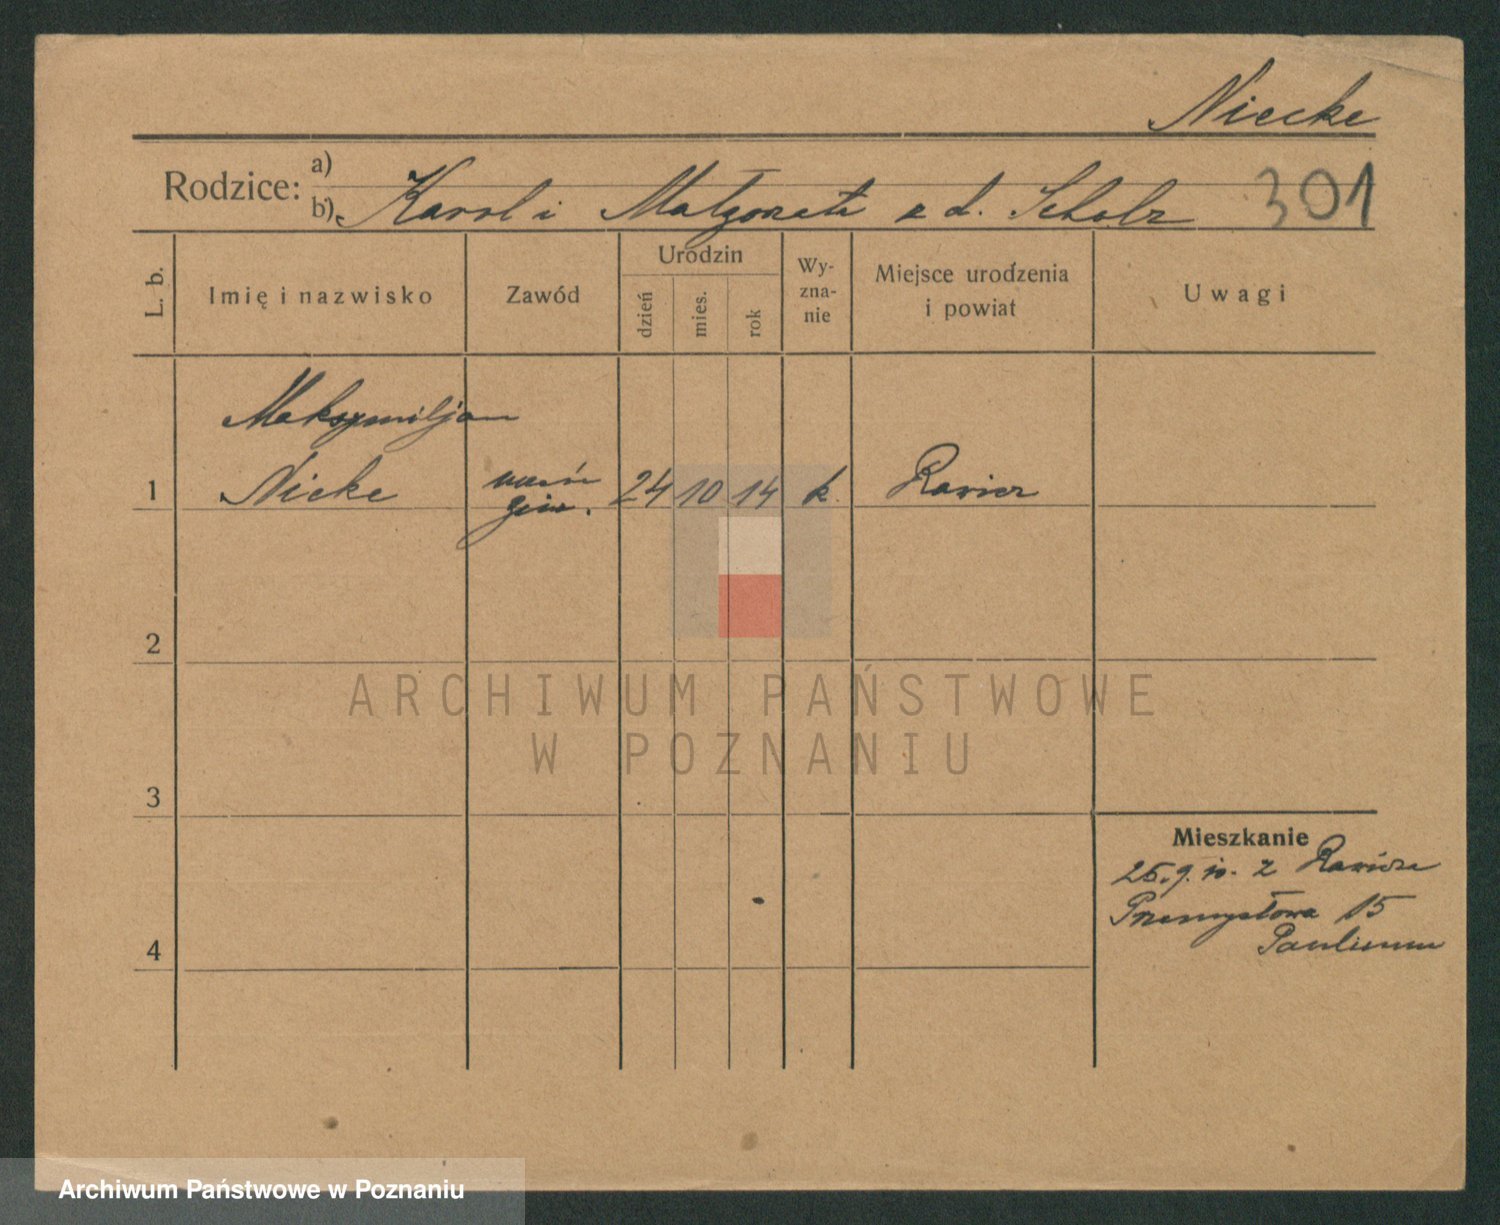 Niecke
Rodzice: a)
b) Karol i Małgorzata z d. Scholz 301
L. b. Imię i nazwisko Zawód Urodzin dzień mies. rok Wyzna-nie Miejsce urodzenia i powiat Uwagi
Maksymiljan
1 Niecke uczeń 24 10 14 k. Rawicz
gim.
2
ARCHIWUM PAŃSTWOWE
W POZNANIU
3
Mieszkanie
25. 9. z Rawicza
Przemysłowa 15
4 Paulinum
Archiwum Państwowe w Poznaniu